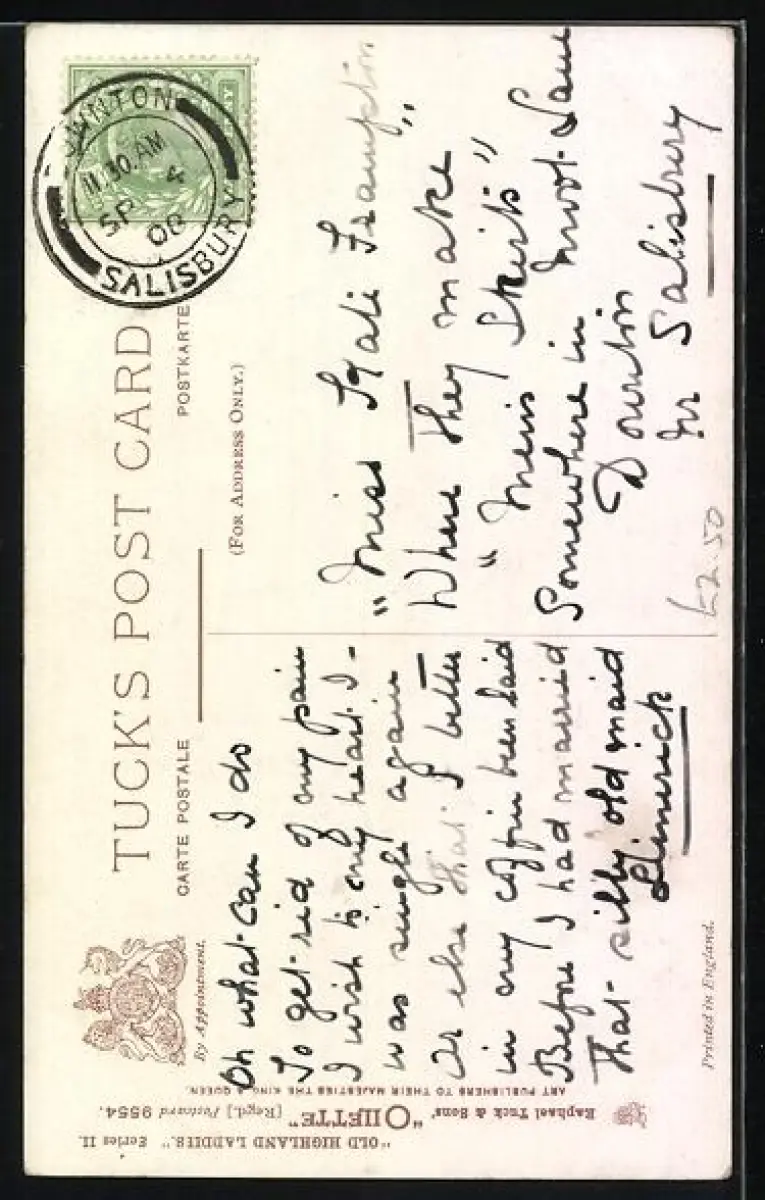 TUCK'S POST CARD
CARTE POSTALE
POSTKARTE
By Appointment.
(FOR ADDRESS ONLY.)
DOWNTON
11.30.AM
SP 4
08
SALISBURY
Oh what can I do
To get rid of my pain
I wish to my heart I-
was single again
Or else that I better
in my coffin been laid
Before I had married
That silly old maid
Limerick
"Miss Kate Frampton"
Where They make
"Mens Skirts"
Somewhere in Moot Lane
Downton
Nr Salisbury
£2.50
"OLD HIGHLAND LADDIES." Series II.
Raphael Tuck & Sons' "OILETTE" [Regd.] Postcard 9554.
ART PUBLISHERS TO THEIR MAJESTIES THE KING & QUEEN.
Printed in England.